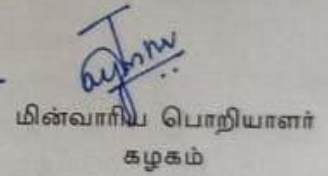 மின்வாரிய பொறியாளர்
கழகம்